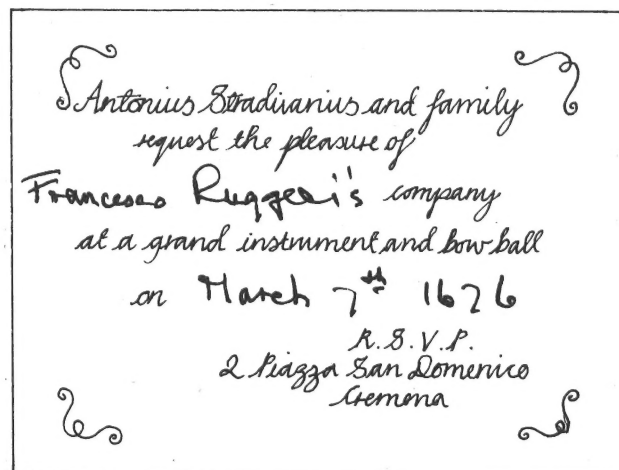 Antonius Stradivarius and family
request the pleasure of
Francesco Ruggeri's company
at a grand instrument and bow ball
on March 7th 1676
R.S.V.P.
2 Piazza San Domenico
Cremona